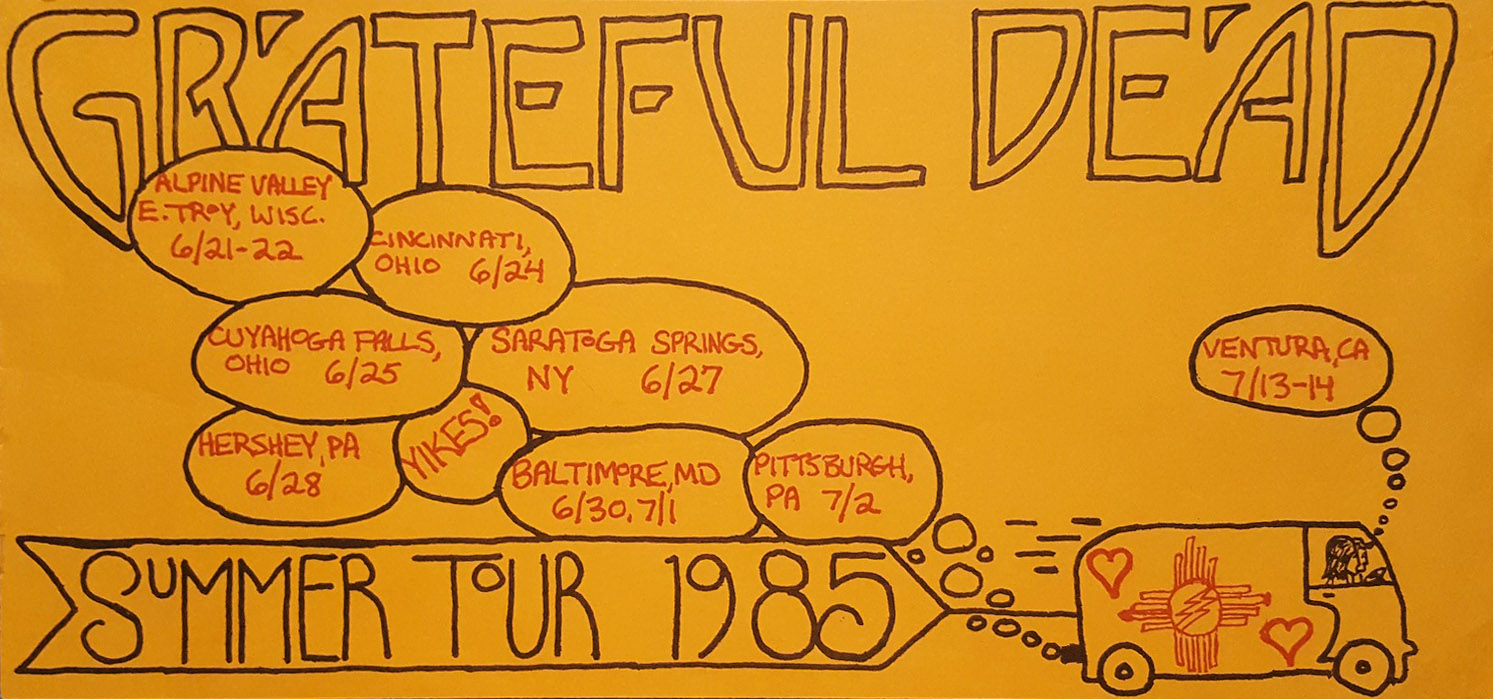 GRATEFUL DEAD
ALPINE VALLEY
E. TROY, WISC.
6/21-22
CINCINNATI,
OHIO 6/24
CUYAHOGA FALLS,
OHIO 6/25
SARATOGA SPRINGS,
NY 6/27
HERSHEY, PA
6/28
YIKES!
BALTIMORE, MD
6/30, 7/1
PITTSBURGH,
PA 7/2
VENTURA, CA
7/13-14
SUMMER TOUR 1985